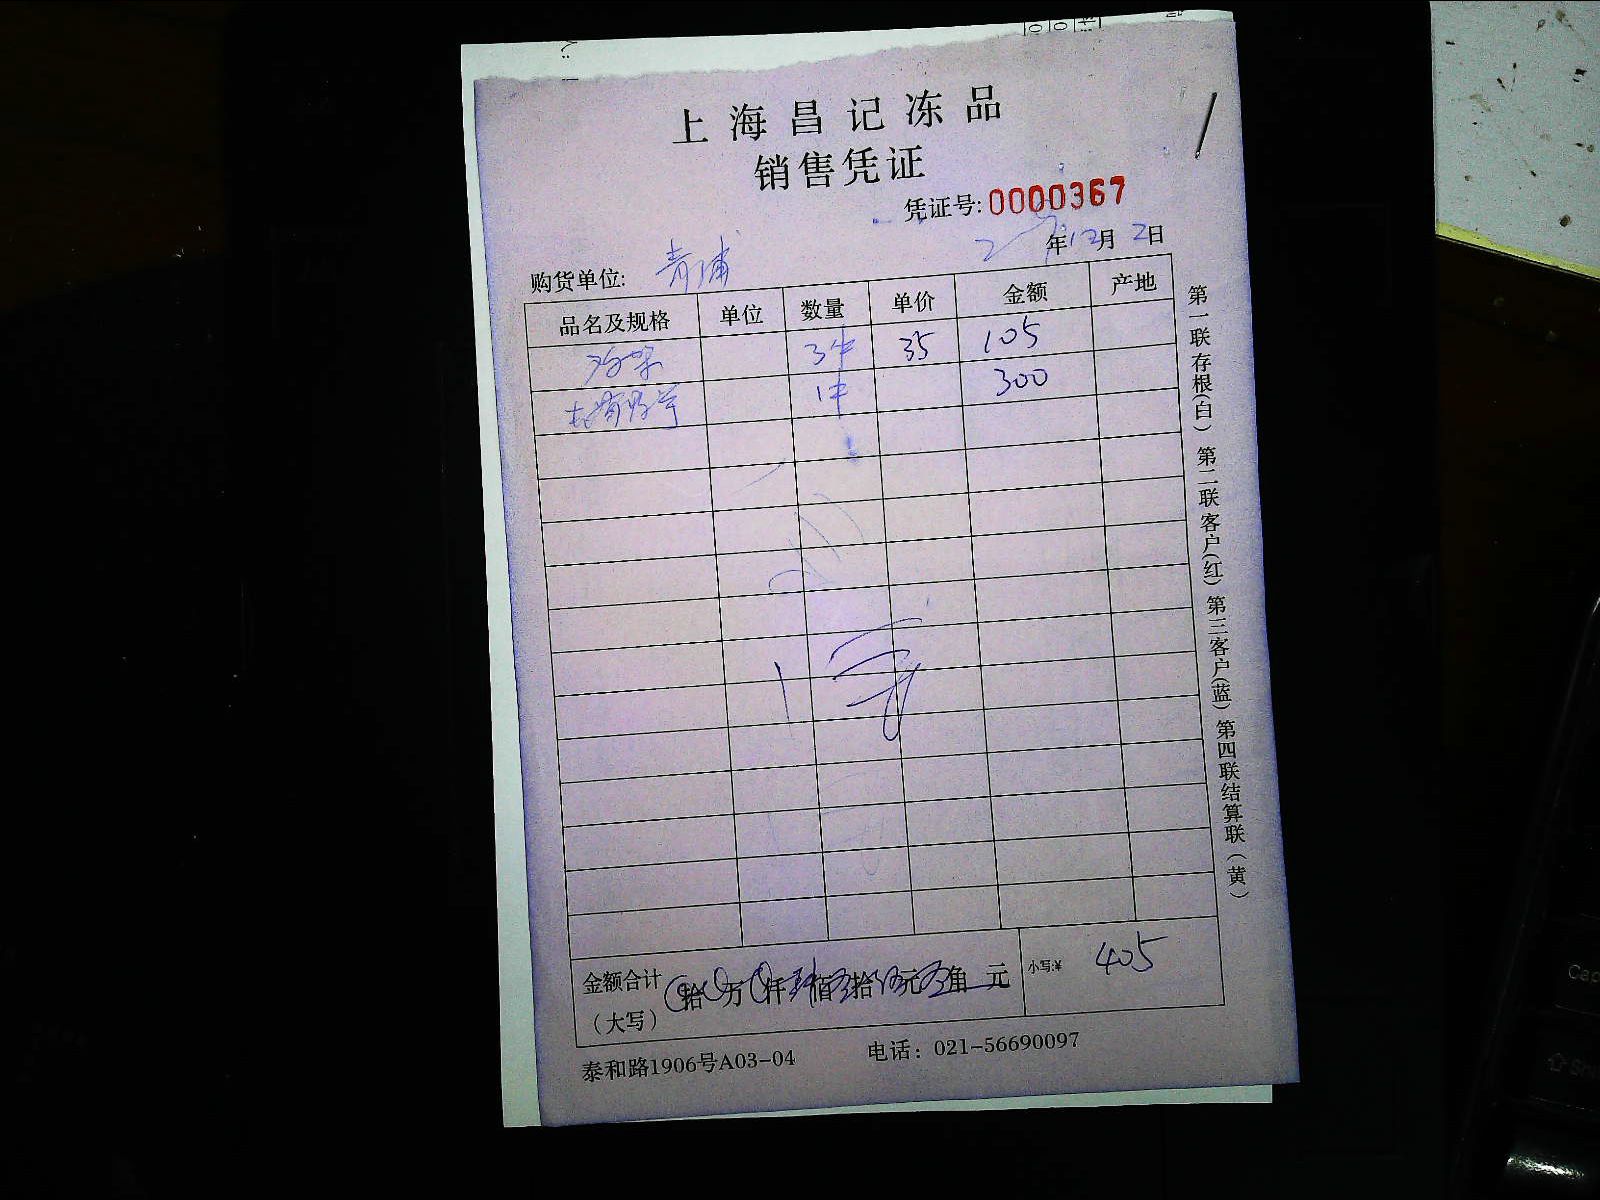 上海昌记冻品
销售凭证
凭证号:0000367
年12月2日
购货单位: 青浦
品名及规格 单位 数量 单价 金额 产地
3件 35 105
1件 300
金额合计 拾 万 仟 佰 拾 元 角 元
(大写)
小写:¥ 405
泰和路1906号A03-04 电话: 021-56690097
第一联存根(白) 第二联客户(红) 第三客户(蓝) 第四联结算联(黄)